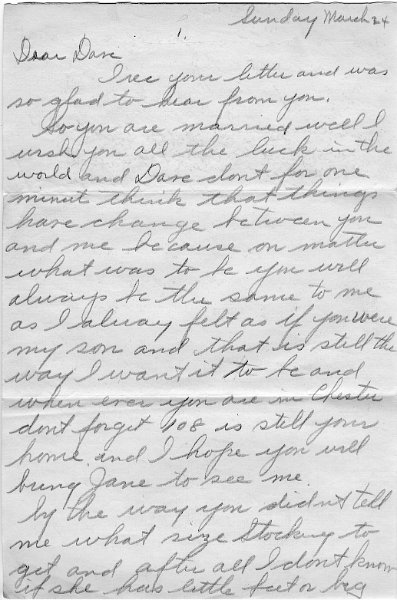 Sunday March 24
1.
Dear Dave
I rec your letter and was
so glad to hear from you.
So you are married well I
wish you all the luck in the
world and Dave dont for one
minut think that things
have change between you
and me because on matter
what was to be you will
always be the same to me
as I alway felt as if you were
my son and that is still the
way I want it to be and
when ever you are in Chester
dont forget 108 is still your
home and I hope you will
bring Jane to see me.
by the way you didnt tell
me what size Stocking to
get and after all I dont know
if she has little feet or big